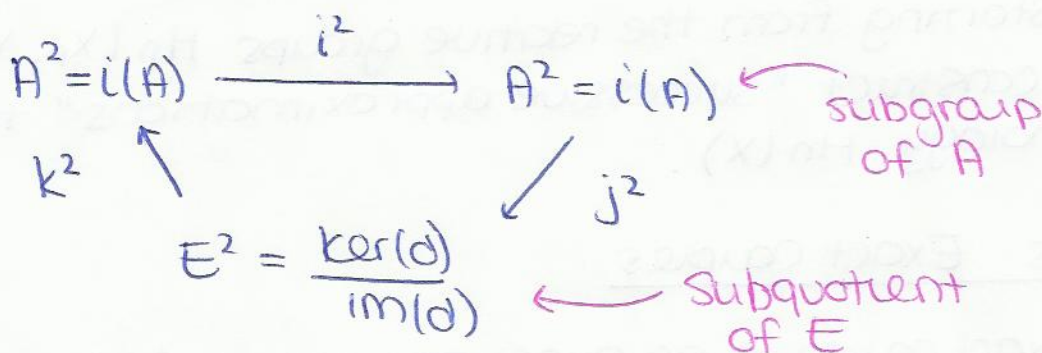 i²
A² = i(A) → A² = i(A) ← subgroup of A
k² j²
E² = ker(d) / im(d) ← subquotient of E